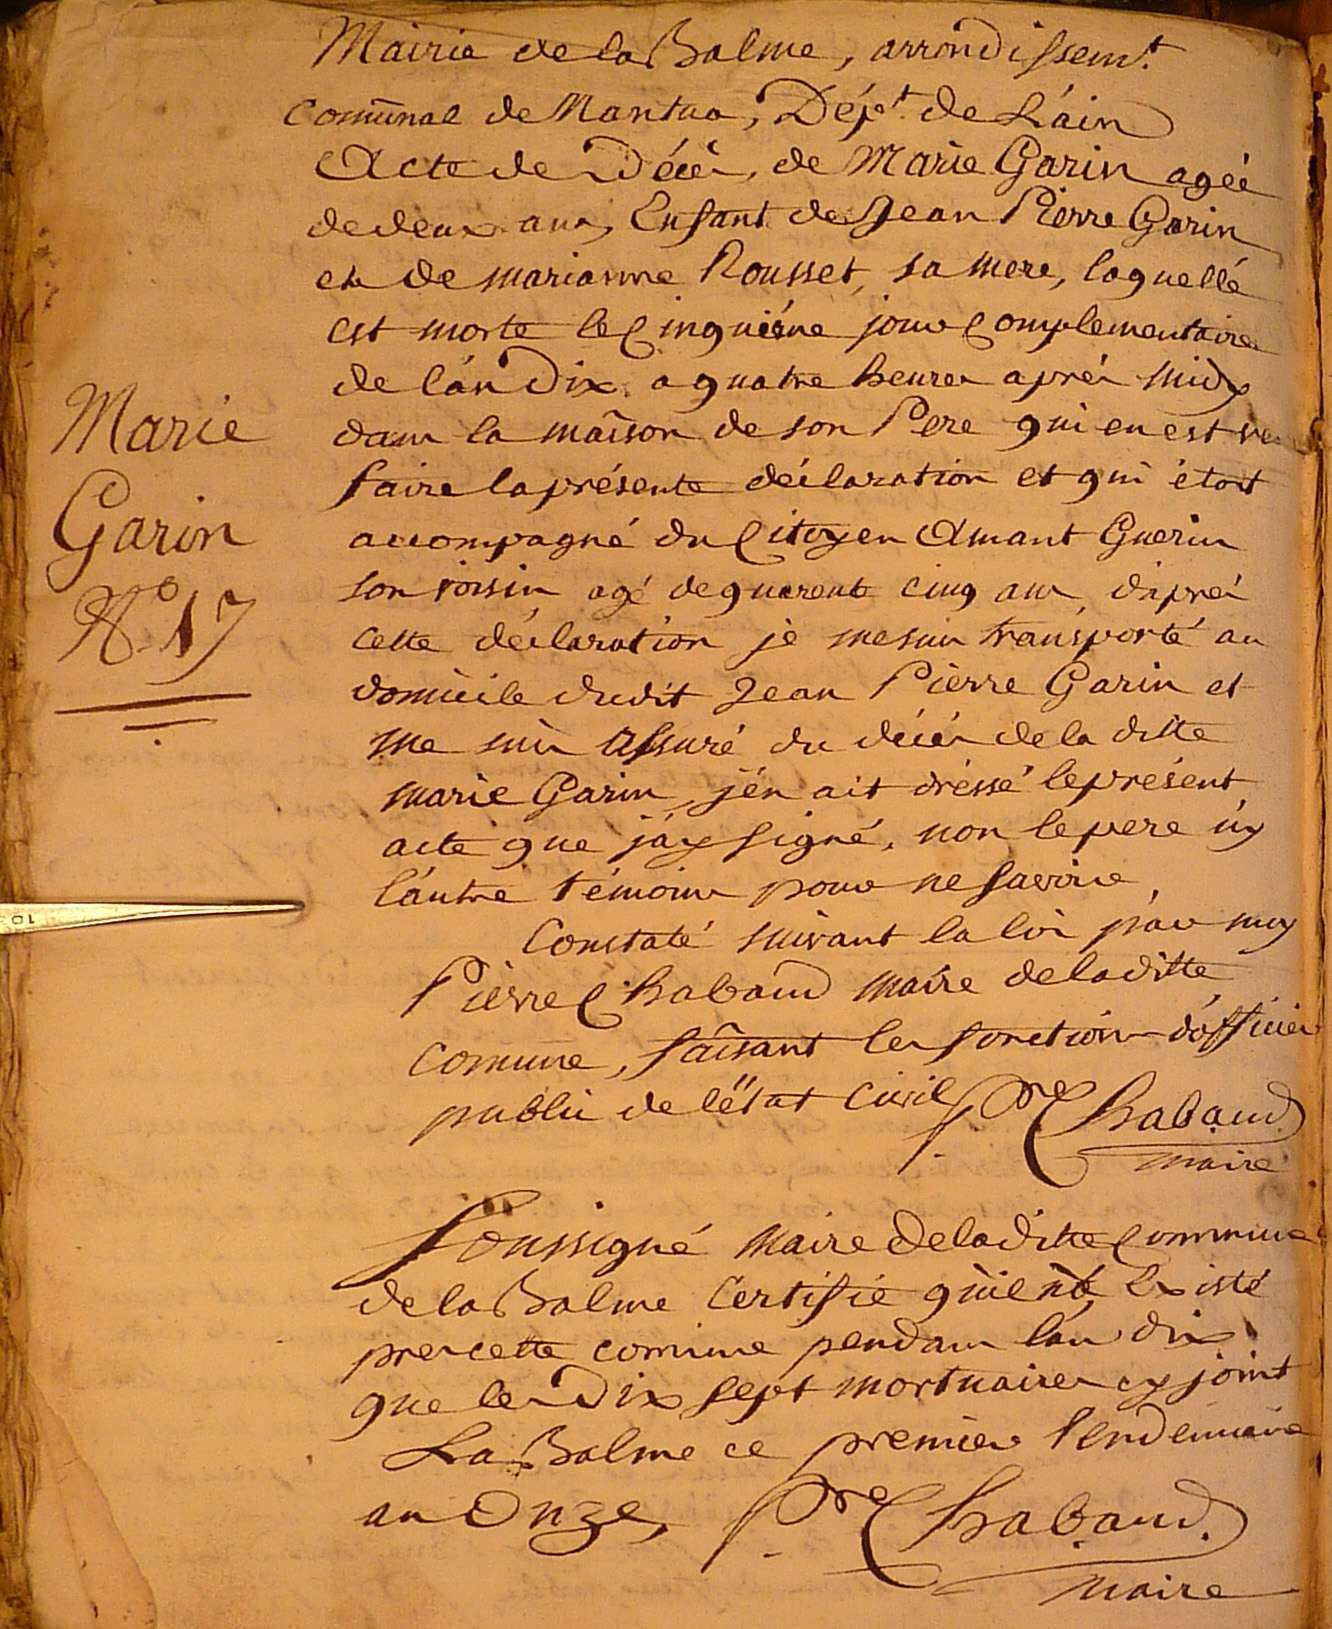 Mairie de la Balme, arrondissemt.
Comunal de Mantua, Dépt. de L'ain
Acte de Décès, de Marie Garin agée
de deux ans, Enfant de Jean Pierre Garin
et de marianne Rousset, sa mere, laquellé
est morte le Cinquiéme jour Complementaires
de l'an Dix a quatre heures aprés midy
dans la maison de son Pere qui en est
faire la présente déclaration et qui étoit
accompagné du Citoyen Amant Guerin
son voisin agé de quarente cinq ans, d'aprés
cette déclaration je me suis transporté au
domicile dudit Jean Pierre Garin et
me suis assuré du décés de la ditte
marie Garin, j'én ait dréssé le présent
acte que j'ay signé, non le pere n'y
l'autre témoins pour ne savoire,
Constaté suivant la loi par moy
Pierre Chabaud maire de la ditte
comune, faisant les fonction d'officier
public de l'état civil Pre Chabaud
maire
Marie
Garin
No. 17
Soussigné maire de la ditte Commune
de la Balme Certifie qu'il n'é Existé
cette comune pendans l'an dix
que les Dix sept mortuaires cy joint
La Balme ce premier Vendemiaire
an Onze, Pre Chabaud.
maire
10